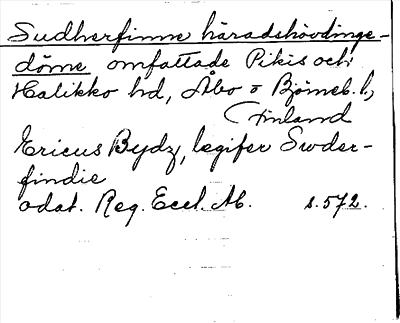 Sudherfinne häradshövdinge-
döme omfattade Pikis och
Halikko hd, Åbo o Björneb. l,
Finland
Ericus Bydz, legifer Swder-
findie
odat. Reg. Eccl. Ab. s. 572.